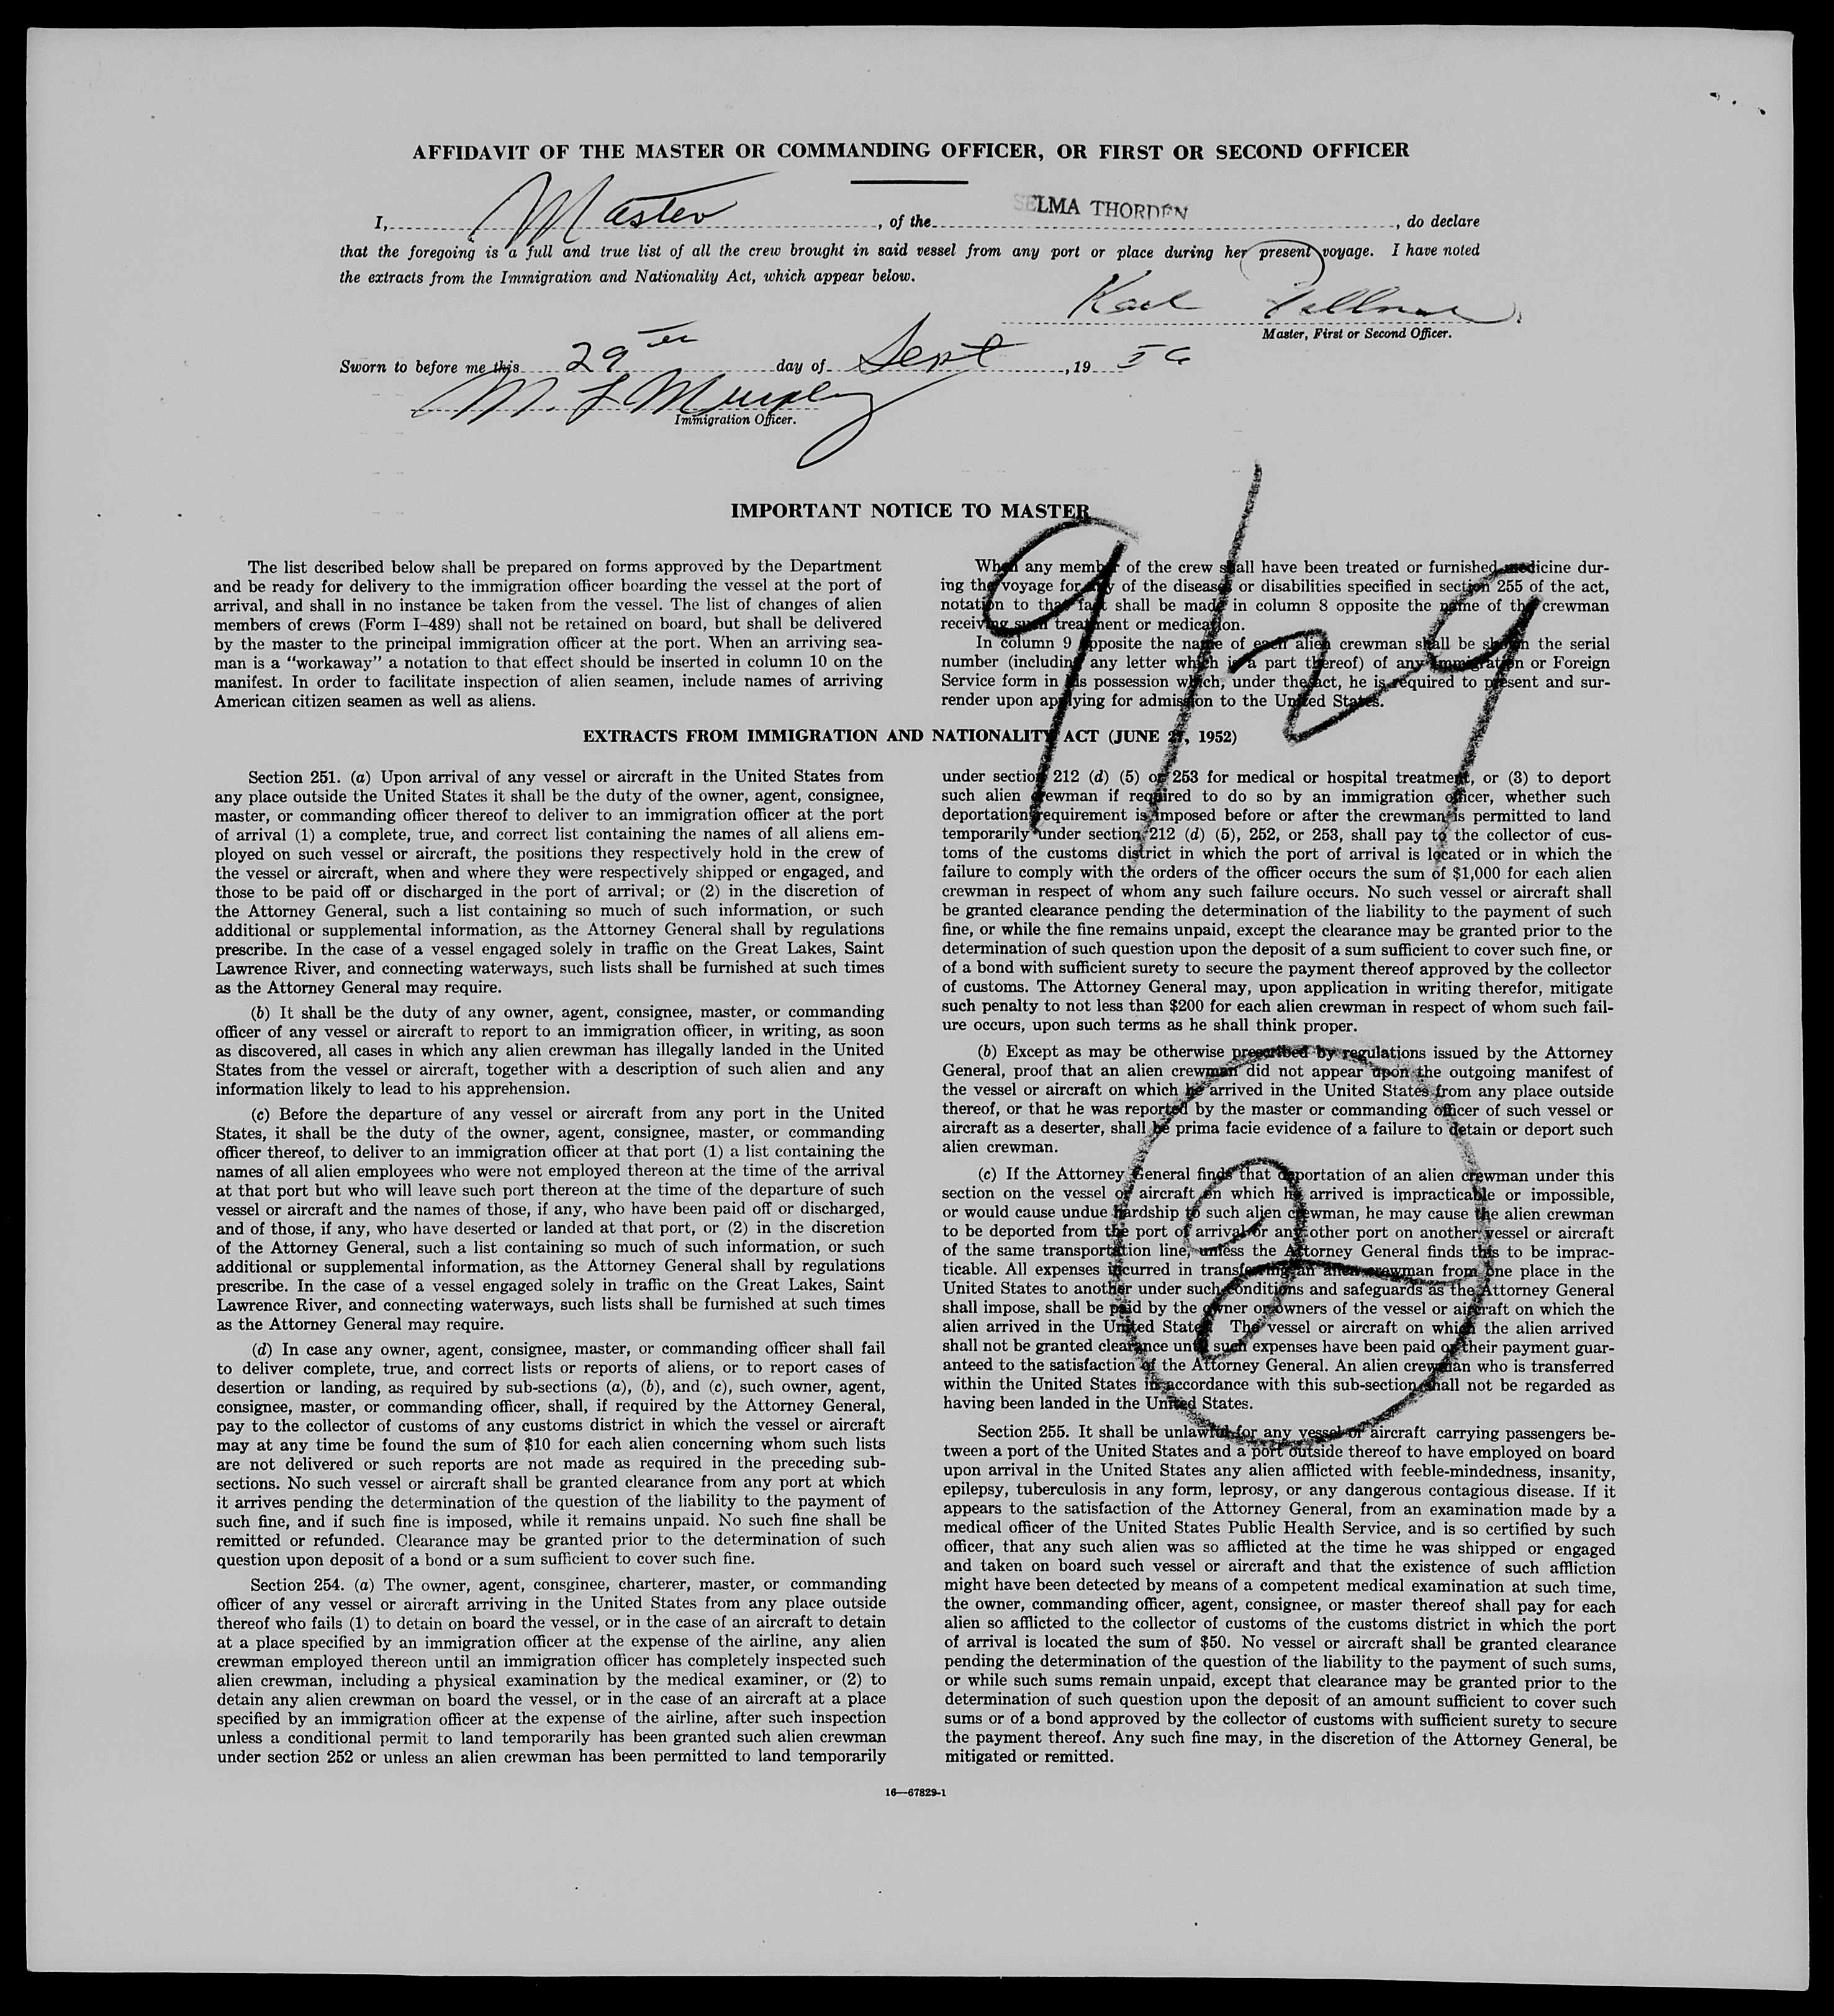 AFFIDAVIT OF THE MASTER OR COMMANDING OFFICER, OR FIRST OR SECOND OFFICER
I, Master, of the SELMA THORDEN, do declare
that the foregoing is a full and true list of all the crew brought in said vessel from any port or place during her present voyage. I have noted
the extracts from the Immigration and Nationality Act, which appear below.
Karl
Master, First or Second Officer.
Sworn to before me this 29th day of Sept, 1956
M. L Murphy
Immigration Officer.
IMPORTANT NOTICE TO MASTER
The list described below shall be prepared on forms approved by the Department
and be ready for delivery to the immigration officer boarding the vessel at the port of
arrival, and shall in no instance be taken from the vessel. The list of changes of alien
members of crews (Form I–489) shall not be retained on board, but shall be delivered
by the master to the principal immigration officer at the port. When an arriving sea-
man is a “workaway” a notation to that effect should be inserted in column 10 on the
manifest. In order to facilitate inspection of alien seamen, include names of arriving
American citizen seamen as well as aliens.
When any member of the crew shall have been treated or furnished medicine dur-
ing the voyage for any of the diseases or disabilities specified in section 255 of the act,
notation to that fact shall be made in column 8 opposite the name of the crewman
receiving such treatment or medication.
In column 9 opposite the name of each alien crewman shall be shown the serial
number (including any letter which is a part thereof) of any immigration or Foreign
Service form in his possession which, under the act, he is required to present and sur-
render upon applying for admission to the United States.
9/29
EXTRACTS FROM IMMIGRATION AND NATIONALITY ACT (JUNE 27, 1952)
Section 251. (a) Upon arrival of any vessel or aircraft in the United States from
any place outside the United States it shall be the duty of the owner, agent, consignee,
master, or commanding officer thereof to deliver to an immigration officer at the port
of arrival (1) a complete, true, and correct list containing the names of all aliens em-
ployed on such vessel or aircraft, the positions they respectively hold in the crew of
the vessel or aircraft, when and where they were respectively shipped or engaged, and
those to be paid off or discharged in the port of arrival; or (2) in the discretion of
the Attorney General, such a list containing so much of such information, or such
additional or supplemental information, as the Attorney General shall by regulations
prescribe. In the case of a vessel engaged solely in traffic on the Great Lakes, Saint
Lawrence River, and connecting waterways, such lists shall be furnished at such times
as the Attorney General may require.
(b) It shall be the duty of any owner, agent, consignee, master, or commanding
officer of any vessel or aircraft to report to an immigration officer, in writing, as soon
as discovered, all cases in which any alien crewman has illegally landed in the United
States from the vessel or aircraft, together with a description of such alien and any
information likely to lead to his apprehension.
(c) Before the departure of any vessel or aircraft from any port in the United
States, it shall be the duty of the owner, agent, consignee, master, or commanding
officer thereof, to deliver to an immigration officer at that port (1) a list containing the
names of all alien employees who were not employed thereon at the time of the arrival
at that port but who will leave such port thereon at the time of the departure of such
vessel or aircraft and the names of those, if any, who have been paid off or discharged,
and of those, if any, who have deserted or landed at that port, or (2) in the discretion
of the Attorney General, such a list containing so much of such information, or such
additional or supplemental information, as the Attorney General shall by regulations
prescribe. In the case of a vessel engaged solely in traffic on the Great Lakes, Saint
Lawrence River, and connecting waterways, such lists shall be furnished at such times
as the Attorney General may require.
(d) In case any owner, agent, consignee, master, or commanding officer shall fail
to deliver complete, true, and correct lists or reports of aliens, or to report cases of
desertion or landing, as required by sub-sections (a), (b), and (c), such owner, agent,
consignee, master, or commanding officer, shall, if required by the Attorney General,
pay to the collector of customs of any customs district in which the vessel or aircraft
may at any time be found the sum of $10 for each alien concerning whom such lists
are not delivered or such reports are not made as required in the preceding sub-
sections. No such vessel or aircraft shall be granted clearance from any port at which
it arrives pending the determination of the question of the liability to the payment of
such fine, and if such fine is imposed, while it remains unpaid. No such fine shall be
remitted or refunded. Clearance may be granted prior to the determination of such
question upon deposit of a bond or a sum sufficient to cover such fine.
Section 254. (a) The owner, agent, consginee, charterer, master, or commanding
officer of any vessel or aircraft arriving in the United States from any place outside
thereof who fails (1) to detain on board the vessel, or in the case of an aircraft to detain
at a place specified by an immigration officer at the expense of the airline, any alien
crewman employed thereon until an immigration officer has completely inspected such
alien crewman, including a physical examination by the medical examiner, or (2) to
detain any alien crewman on board the vessel, or in the case of an aircraft at a place
specified by an immigration officer at the expense of the airline, after such inspection
unless a conditional permit to land temporarily has been granted such alien crewman
under section 252 or unless an alien crewman has been permitted to land temporarily
under section 212 (d) (5) or 253 for medical or hospital treatment, or (3) to deport
such alien crewman if required to do so by an immigration officer, whether such
deportation requirement is imposed before or after the crewman is permitted to land
temporarily under section 212 (d) (5), 252, or 253, shall pay to the collector of cus-
toms of the customs district in which the port of arrival is located or in which the
failure to comply with the orders of the officer occurs the sum of $1,000 for each alien
crewman in respect of whom any such failure occurs. No such vessel or aircraft shall
be granted clearance pending the determination of the liability to the payment of such
fine, or while the fine remains unpaid, except the clearance may be granted prior to the
determination of such question upon the deposit of a sum sufficient to cover such fine, or
of a bond with sufficient surety to secure the payment thereof approved by the collector
of customs. The Attorney General may, upon application in writing therefor, mitigate
such penalty to not less than $200 for each alien crewman in respect of whom such fail-
ure occurs, upon such terms as he shall think proper.
(b) Except as may be otherwise prescribed by regulations issued by the Attorney
General, proof that an alien crewman did not appear upon the outgoing manifest of
the vessel or aircraft on which he arrived in the United States from any place outside
thereof, or that he was reported by the master or commanding officer of such vessel or
aircraft as a deserter, shall be prima facie evidence of a failure to detain or deport such
alien crewman.
(c) If the Attorney General finds that deportation of an alien crewman under this
section on the vessel or aircraft on which he arrived is impracticable or impossible,
or would cause undue hardship to such alien crewman, he may cause the alien crewman
to be deported from the port of arrival or any other port on another vessel or aircraft
of the same transportation line, unless the Attorney General finds this to be imprac-
ticable. All expenses incurred in transferring an alien crewman from one place in the
United States to another under such conditions and safeguards as the Attorney General
shall impose, shall be paid by the owner or owners of the vessel or aircraft on which the
alien arrived in the United States. The vessel or aircraft on which the alien arrived
shall not be granted clearance until such expenses have been paid or their payment guar-
anteed to the satisfaction of the Attorney General. An alien crewman who is transferred
within the United States in accordance with this sub-section shall not be regarded as
having been landed in the United States.
2
Section 255. It shall be unlawful for any vessel or aircraft carrying passengers be-
tween a port of the United States and a port outside thereof to have employed on board
upon arrival in the United States any alien afflicted with feeble-mindedness, insanity,
epilepsy, tuberculosis in any form, leprosy, or any dangerous contagious disease. If it
appears to the satisfaction of the Attorney General, from an examination made by a
medical officer of the United States Public Health Service, and is so certified by such
officer, that any such alien was so afflicted at the time he was shipped or engaged
and taken on board such vessel or aircraft and that the existence of such affliction
might have been detected by means of a competent medical examination at such time,
the owner, commanding officer, agent, consignee, or master thereof shall pay for each
alien so afflicted to the collector of customs of the customs district in which the port
of arrival is located the sum of $50. No vessel or aircraft shall be granted clearance
pending the determination of the question of the liability to the payment of such sums,
or while such sums remain unpaid, except that clearance may be granted prior to the
determination of such question upon the deposit of an amount sufficient to cover such
sums or of a bond approved by the collector of customs with sufficient surety to secure
the payment thereof. Any such fine may, in the discretion of the Attorney General, be
mitigated or remitted.
16—67829-1